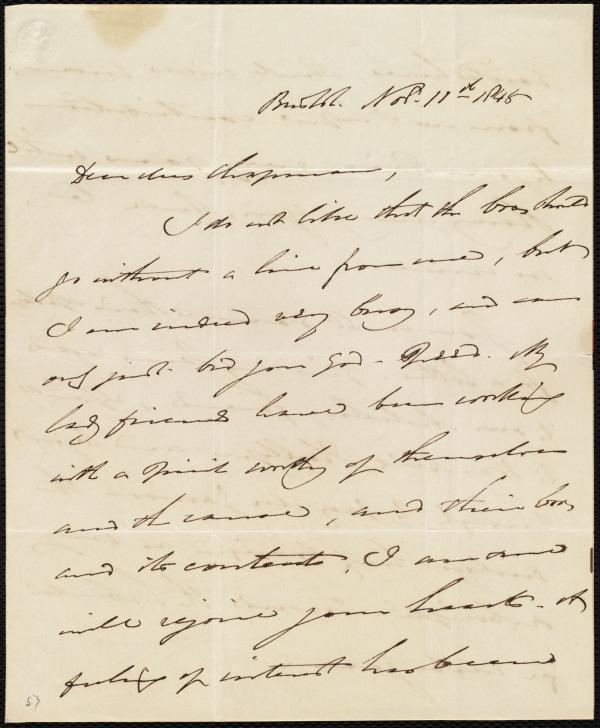 Bristol. Nov. 11th 1845
Dear Mrs Chapman,
I do not like that the box should
go without a line from me, but
I am indeed very busy, and can
only just bid you God-Speed. My
lady friends have been working
with a spirit worthy of themselves
and the cause, and their box
and its contents, I am sure
will rejoice your heart - A
feeling of interest has been
53